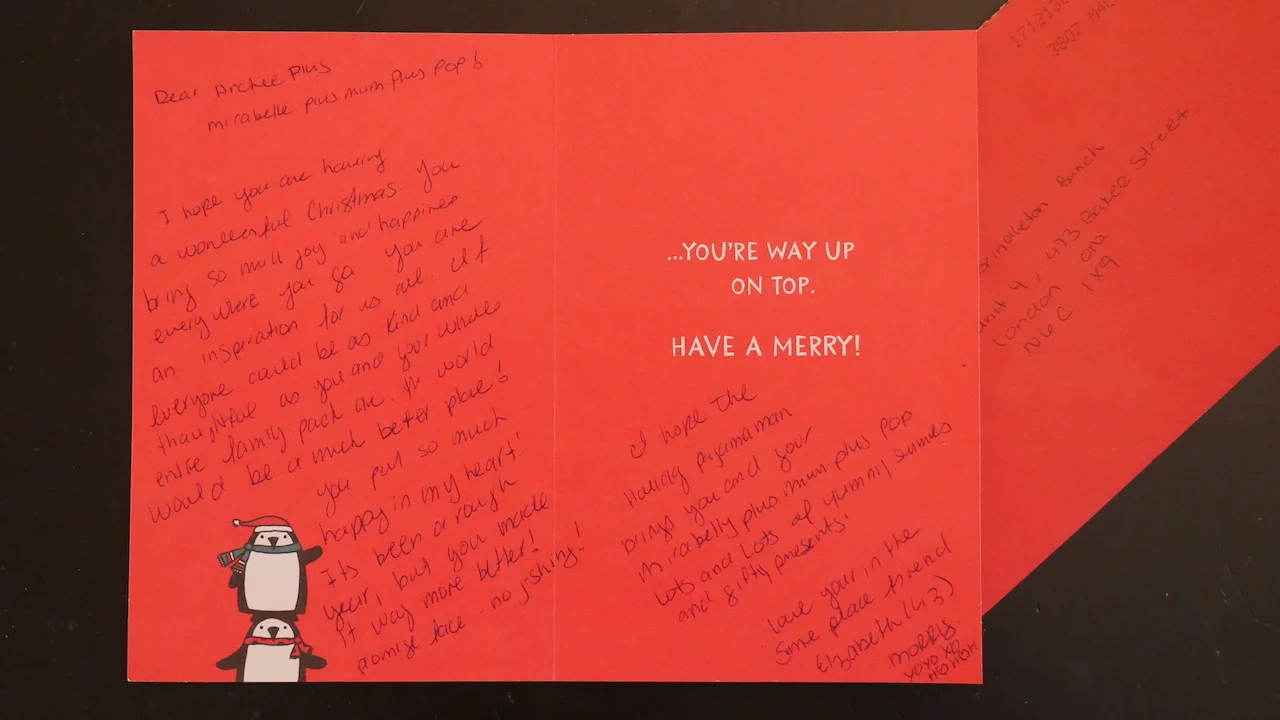 Dear Archee Plus
mirabelle plus mum plus Pop b
I hope you are having
a wonderful Christmas. You
bring so much joy and happiness
everywhere you go. You are
an inspiration for us all. If
everyone could be as kind and
thoughtful as you and your whole
entire family pack are. The world
would be a much better place!
You put so much
happy in my heart!
Its been a rough
year, but you made
it way more better!
promise face. no jishing!
...YOU'RE WAY UP
ON TOP.
HAVE A MERRY!
I hope the
Holiday Pajamaman
brings you and your
mirabelly plus mum plus pop
lots and lots of yummy summies
and gifty presents!
Love your in the
Same place friend
Elizabeth (43)
morris
YOYO XO
HOHOH
Brindleton Bunch
Unit 4, 473 Baker Street
London ON
N6C 1X9